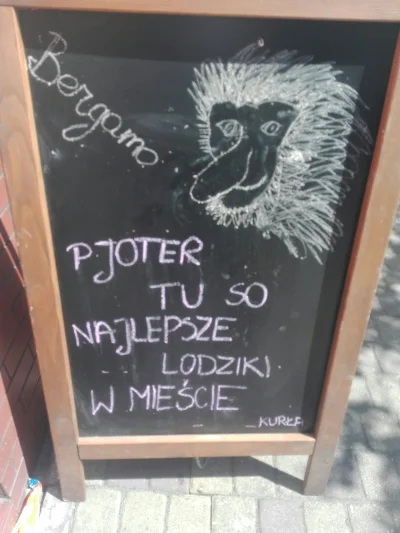 Bergamo
PJOTER
TU SO
NAJLEPSZE
LODZIKI
W MIEŚCIE
KURŁA